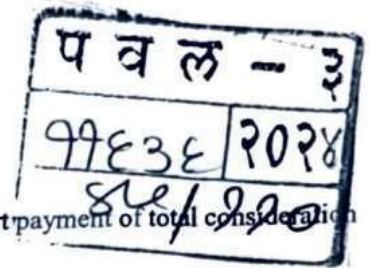 प व ल - ३
११६३६ २०२४
t payment of total consideration